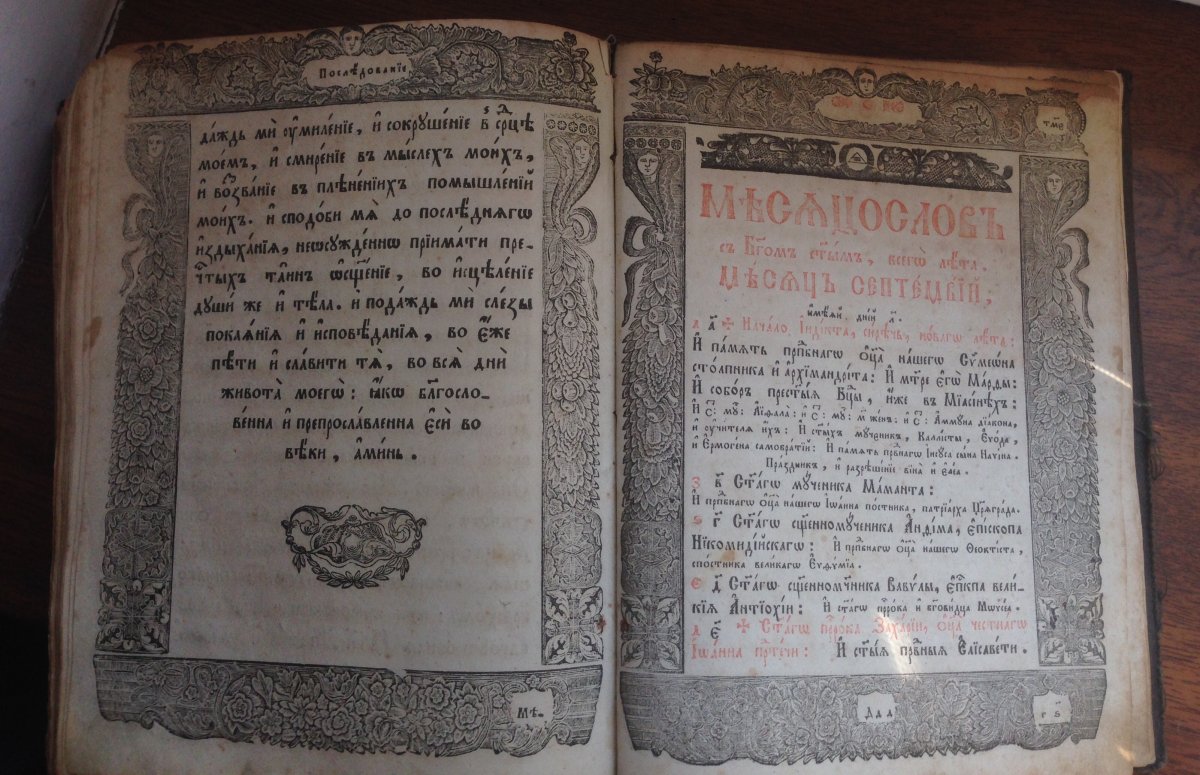 Послѣ́дованїе
да́ждь мѝ ᲂу҆миле́нїе, и҆ сокрꙋше́нїе в̾ср҃цѣ
моемъ, и҆ смире́нїе въ мы́слехъ мои́хъ,
и҆ возва́нїе въ плѣне́нїихъ помышле́нїй
мои́хъ. и҆ сподо́би мѧ̀ до послѣ́днѧгѡ
и҆здыха́нїѧ, неѡсꙋжде́ннѡ прїима́ти пре-
чⷭ҇тыхъ та́инъ ѡ҆сщ҃е́нїе, во и҆сцѣле́нїе
дꙋши́ же и҆ тѣ́ла. и пода́ждь мѝ сле́зы
покаѧ́нїѧ и҆ и҆сповѣ́данїѧ, во є҆́же
пѣ́ти и҆ сла́вити тѧ̀, во всѧ̑ днѝ
живота̀ моегѡ̀: ꙗ҆́кѡ бл҃госло-
ве́нна и҆ препросла́вленна є҆сѝ во
вѣ́ки, а҆ми́нь.
Мѣ-
тм҃є
Мѣсѧцосло́въ
съ Бг҃омъ ст҃ы́мъ, всегѡ̀ лѣ́та.
Мѣ́сѧцъ септе́мврїй,
и҆мѣ́ѧй дні́й л҃.
а҃ ✠ Нача́ло І҆ндї́кта, си́рѣчь, но́вагѡ лѣ́та:
И҆ па́мѧть прпⷣбнагѡ ѻ҆ц҃а̀ на́шегѡ Сѷмеѡ́на
сто́лпника и҆ а҆рхїмандрі́та: И҆ мт҃ре є҆гѡ̀ Ма́рѳы:
И҆ собо́ръ прест҃ы́ѧ Бцⷣы, и҆́же въ Мїасі́нѣхъ:
и҆ ст҃: мꙋ: А҆їѳа́ла: и҆ ст҃: мꙋ: м҃ же́нъ: и҆ ст҃: А҆ммꙋ́на дїа́кона,
и҆ ᲂу҆чи́телѧ и҆́хъ: И҆ ст҃ы́хъ мꙋ́ченикъ, Каллі́сты, Є҆во́да,
и҆ Є҆рмоге́на самобра́тїй: И҆ па́мѧть прⷣвнагѡ І҆исꙋ́са сы́на Наѵи́на.
Пра́здникъ, и҆ разрѣше́нїе вїна̀ и҆ є҆ле́а.
в҃ Ст҃а́гѡ мꙋ́ченика Ма́манта:
И҆ прпⷣбнагѡ ѻ҆ц҃а̀ на́шегѡ І҆ѡа́нна по́стника, патрїа́рха Цр҃ѧгра́да.
г҃ Ст҃а́гѡ сщ҃енномꙋ́ченика А҆нѳі́ма, є҆пі́скопа
Нїкомиді́йскагѡ: И҆ прпⷣбнагѡ ѻ҆ц҃а̀ на́шегѡ Ѳеокті́ста,
спо́стника вели́кагѡ Є҆ѵѳѵ́мїа.
д҃ Ст҃а́гѡ сщ҃енномч҃ника Вавѵ́лы, є҆пⷭ҇кпа вели́-
кїѧ А҆нтїохі́и: И҆ ст҃а́гѡ прⷪ҇ро́ка и҆ бг҃ови́дца Мѡѷсе́а.
є҃ ✠ Ст҃а́гѡ прⷪ҇ро́ка Заха́рїи, ѻ҆ц҃а̀ честна́гѡ
І҆ѡа́нна прⷣте́чи: И҆ ст҃ы́ѧ прⷣвныѧ Є҆лїсаве́ти.